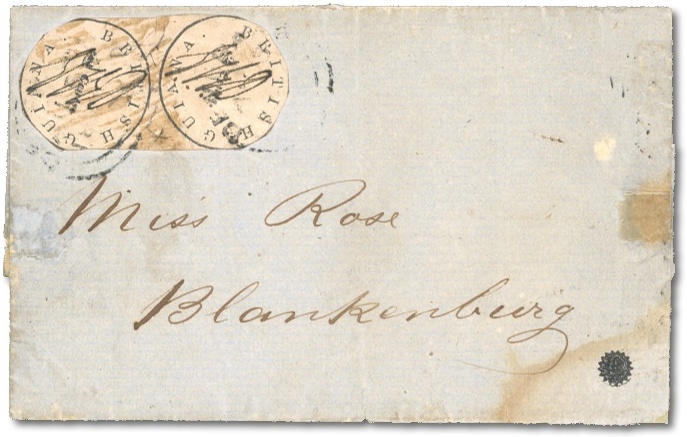 BRITISH GUIANA
BRITISH GUIANA
Miss Rose
Blankenburg